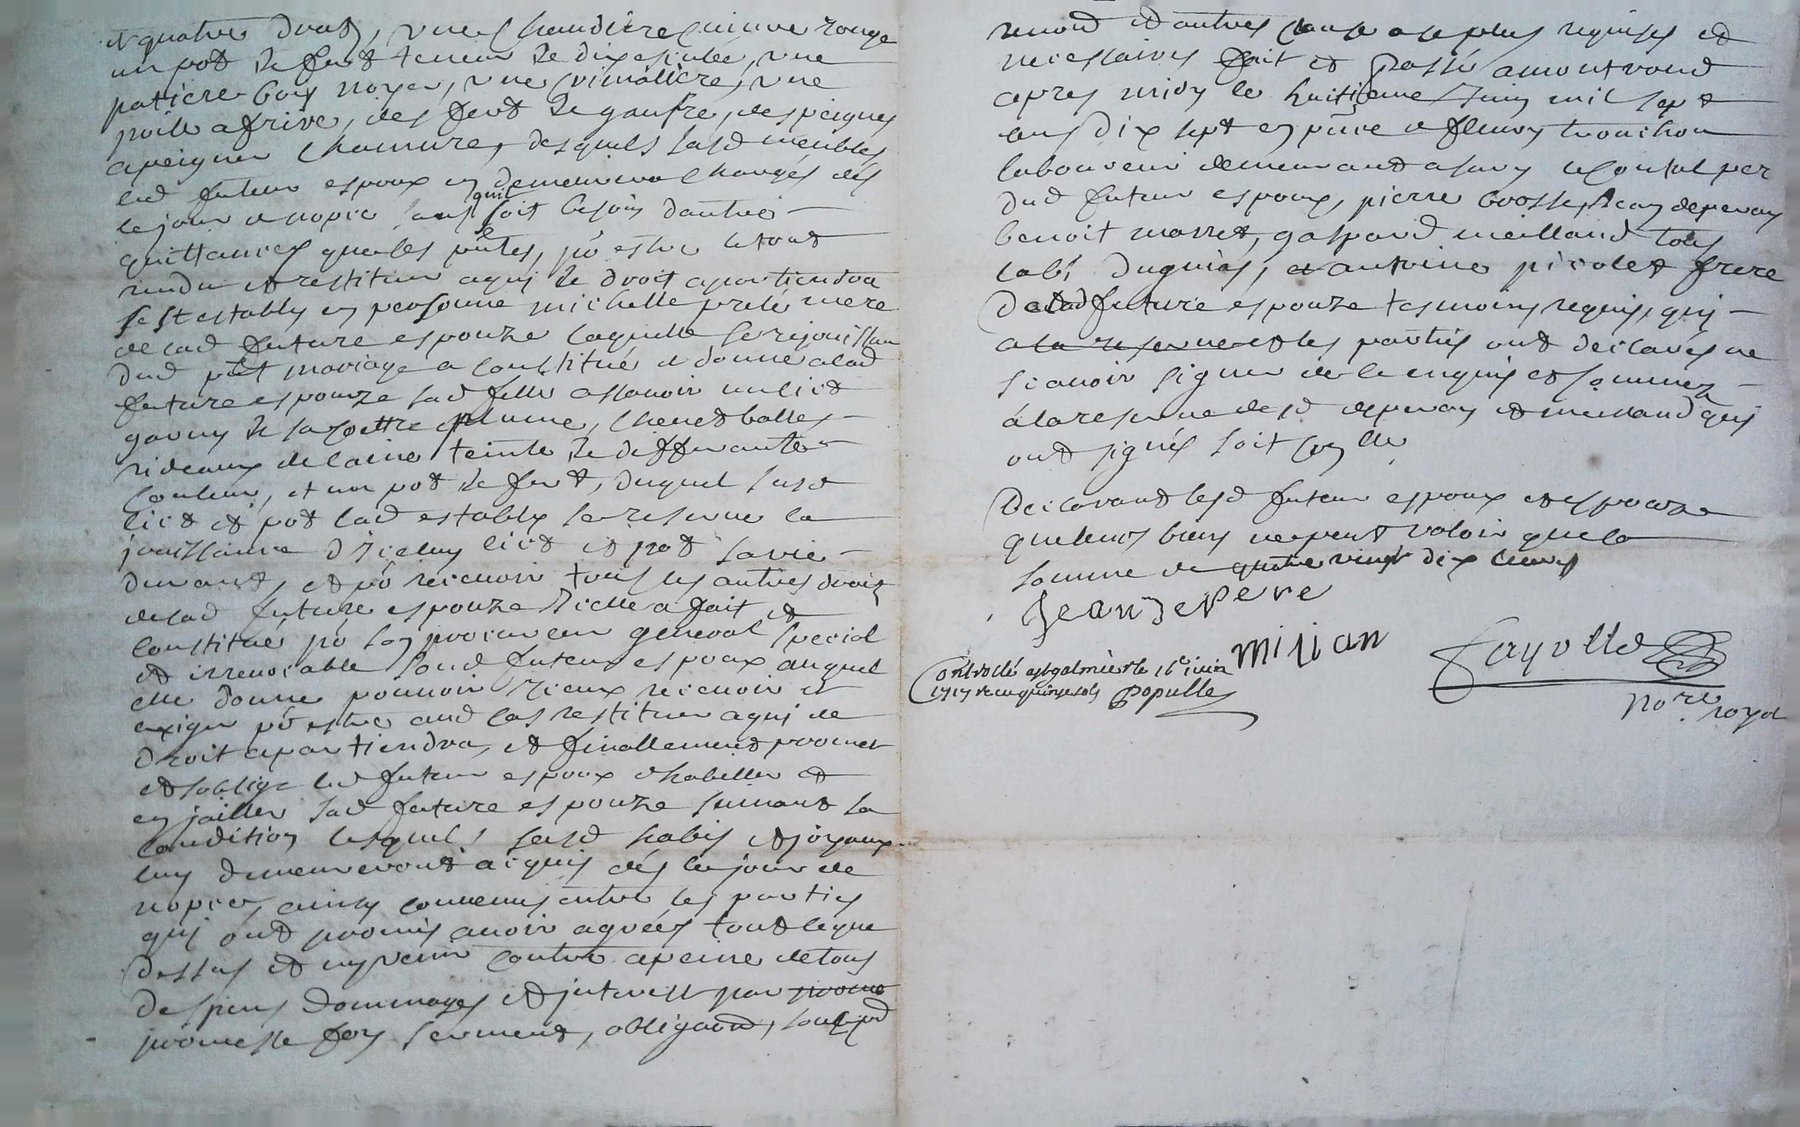 et quatre draps, une chaudiere cuivre rouge
un pot de fert teneur de dix esculée, une
patiere bois noyer, une crimaliere, une
poile a frire, des fert de gaufre, des peignes
a peigner chamure, desquels susd meubles
led futeur espoux en demeurera chargés dés
le jour de nopce sans quil soit besoin dautre
quittances que les pntes, po estre le tout
rendu et restitué a qui de droit apartiendra
sest establly en personne michelle prele mere
de lad future espouze laquelle se rejouissan
dud pnt mariage a constitué et donné a lad
future espouze sad fille assavoir un lict
garny de sa coettre plume, chevet balles
rideaux de laine teinte de differante
couleur, et un pot de fert, duquel susd
lict et pot lad establly se reserve la
jouissance d'iceluy lict et pot sa vie
durant, et po recevoir tous les autres droits
de lad future espouze icelle a fait et
constitué po son procureur general special
et irrevocable sond futeur espoux auquel
elle donne pouvoir d'iceux recevoir et
exiger po estre aud cas restituer a qui de
droit apartiendra, et finallement promet
et soblige led futeur espoux d'habiller et
enjailler sad future espouze suivant sa
condition lesquels susd habis et joyaux
luy demeureront acquis dés le jour de
nopces, ainsy convenus entre les parties
qui ont promis avoir agreés tout ce que
dessus et ny venir contre a peine de tous
despens dommages et interest par prome
promesse foy serment, obligaon, soub
renond et autres clause a ce plus requises et
necessaires fait et passé a montrond
apres midy le huitieme juin mil sept
cens dix sept en pnce de fleury trouchon
laboureur demeurant a sury le contal per
dud futeur espoux, pierre brosse, jean deperay
benoit marret, gaspard meilland tous
labs dugnias, et antoine picolet frere
de lad future espouze tesmoins requis, qui
a la reserve et les parties ont declarés ne
scavoir signer de ce enquis et sommez
a la reserve desd deperay et meilland qui
ont signés soit conlle
Declarant lesd futeur espoux et espouze
que leurs biens ne peut valoir que la
somme de quatre vingt dix livres
Jean depere
mijian
Fayolle
Nore. royal
Controllé a st galmier le 16e juin
1717 recu quinze sols Populle